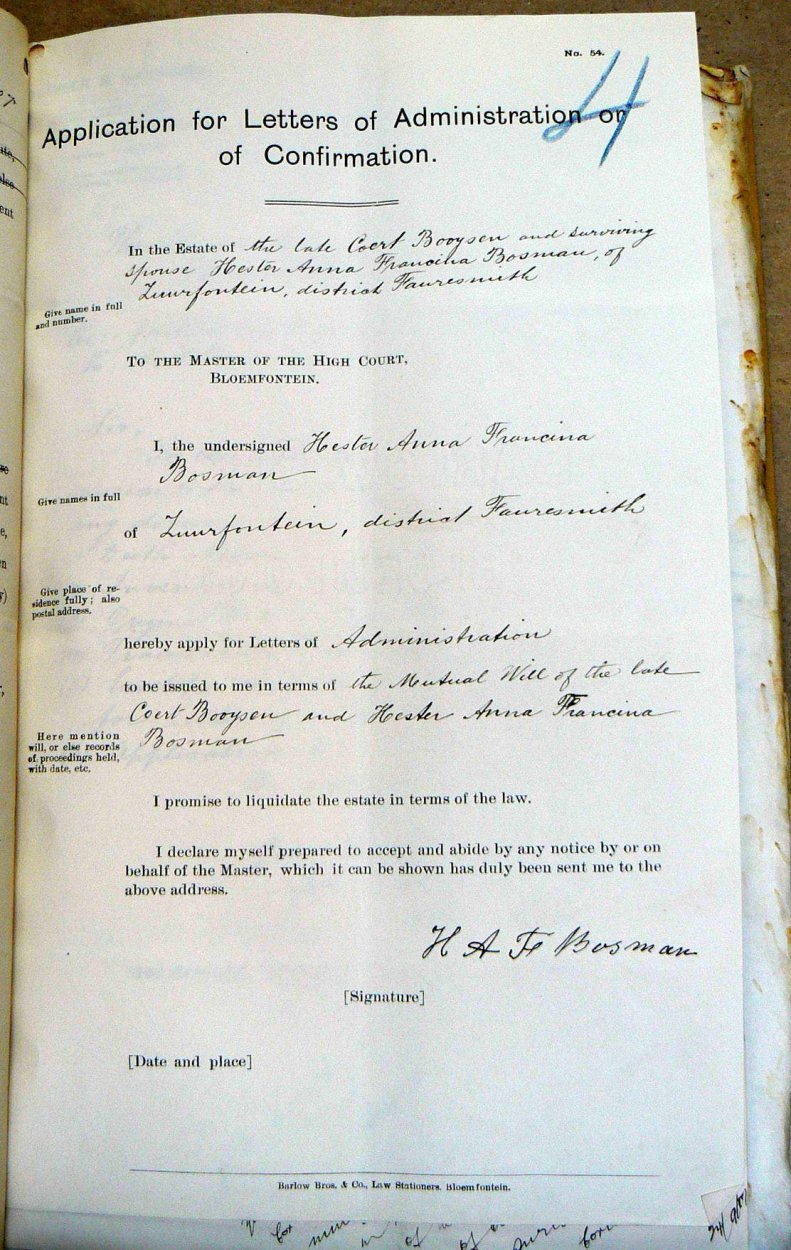 No. 54.
4
Application for Letters of Administration or
of Confirmation.
In the Estate of the late Coert Booysen and surviving
spouse Hester Anna Francina Bosman, of
Zuurfontein, district Fauresmith
Give name in full
and number.
To the Master of the High Court,
Bloemfontein.
I, the undersigned Hester Anna Francina
Bosman
Give names in full
of Zuurfontein, district Fauresmith
Give place of re-
sidence fully; also
postal address.
hereby apply for Letters of Administration
to be issued to me in terms of the Mutual Will of the late
Coert Booysen and Hester Anna Francina
Bosman
Here mention
will, or else records
of proceedings held,
with date, etc.
I promise to liquidate the estate in terms of the law.
I declare myself prepared to accept and abide by any notice by or on
behalf of the Master, which it can be shown has duly been sent me to the
above address.
H A F Bosman
[Signature]
[Date and place]
Barlow Bros. & Co., Law Stationers, Bloemfontein.